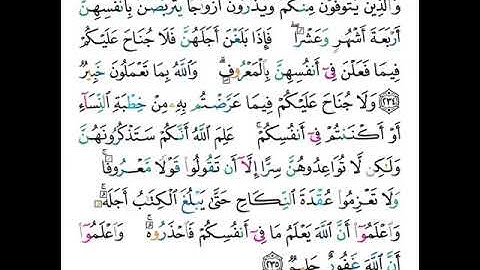 وَٱلَّذِينَ يُتَوَفَّوْنَ مِنكُمْ وَيَذَرُونَ أَزْوَٰجًا يَتَرَبَّصْنَ بِأَنفُسِهِنَّ
أَرْبَعَةَ أَشْهُرٍ وَعَشْرًا ۖ فَإِذَا بَلَغْنَ أَجَلَهُنَّ فَلَا جُنَاحَ عَلَيْكُمْ
فِيمَا فَعَلْنَ فِىٓ أَنفُسِهِنَّ بِٱلْمَعْرُوفِ ۗ وَٱللَّهُ بِمَا تَعْمَلُونَ خَبِيرٌ
﴿٢٣٤﴾ وَلَا جُنَاحَ عَلَيْكُمْ فِيمَا عَرَّضْتُم بِهِۦ مِنْ خِطْبَةِ ٱلنِّسَآءِ
أَوْ أَكْنَنتُمْ فِىٓ أَنفُسِكُمْ ۚ عَلِمَ ٱللَّهُ أَنَّكُمْ سَتَذْكُرُونَهُنَّ
وَلَٰكِن لَّا تُوَاعِدُوهُنَّ سِرًّا إِلَّآ أَن تَقُولُوا۟ قَوْلًا مَّعْرُوفًا ۚ
وَلَا تَعْزِمُوا۟ عُقْدَةَ ٱلنِّكَاحِ حَتَّىٰ يَبْلُغَ ٱلْكِتَٰبُ أَجَلَهُۥ ۚ
وَٱعْلَمُوٓا۟ أَنَّ ٱللَّهَ يَعْلَمُ مَا فِىٓ أَنفُسِكُمْ فَٱحْذَرُوهُ ۚ وَٱعْلَمُوٓا۟
أَنَّ ٱللَّهَ غَفُورٌ حَلِيمٌ ﴿٢٣٥﴾